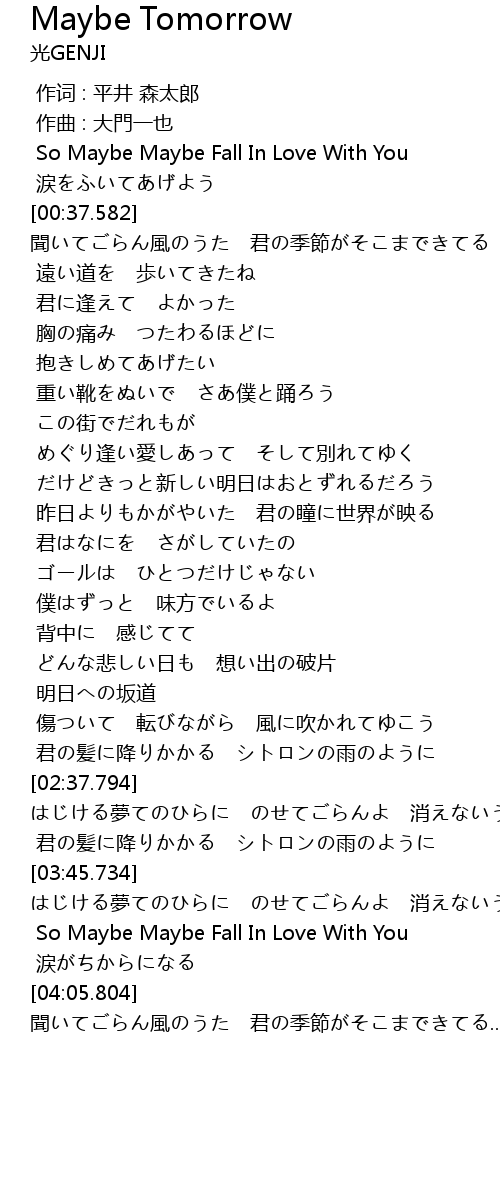 Maybe Tomorrow
光GENJI
作词 : 平井 森太郎
作曲 : 大門一也
So Maybe Maybe Fall In Love With You
涙をふいてあげよう
[00:37.582]
聞いてごらん風のうた　君の季節がそこまできてる
遠い道を　歩いてきたね
君に逢えて　よかった
胸の痛み　つたわるほどに
抱きしめてあげたい
重い靴をぬいで　さあ僕と踊ろう
この街でだれもが
めぐり逢い愛しあって　そして別れてゆく
だけどきっと新しい明日はおとずれるだろう
昨日よりもかがやいた　君の瞳に世界が映る
君はなにを　さがしていたの
ゴールは　ひとつだけじゃない
僕はずっと　味方でいるよ
背中に　感じてて
どんな悲しい日も　想い出の破片
明日への坂道
傷ついて　転びながら　風に吹かれてゆこう
君の髪に降りかかる　シトロンの雨のように
[02:37.794]
はじける夢てのひらに　のせてごらんよ　消えない
君の髪に降りかかる　シトロンの雨のように
[03:45.734]
はじける夢てのひらに　のせてごらんよ　消えない
So Maybe Maybe Fall In Love With You
涙がちからになる
[04:05.804]
聞いてごらん風のうた　君の季節がそこまできてる...